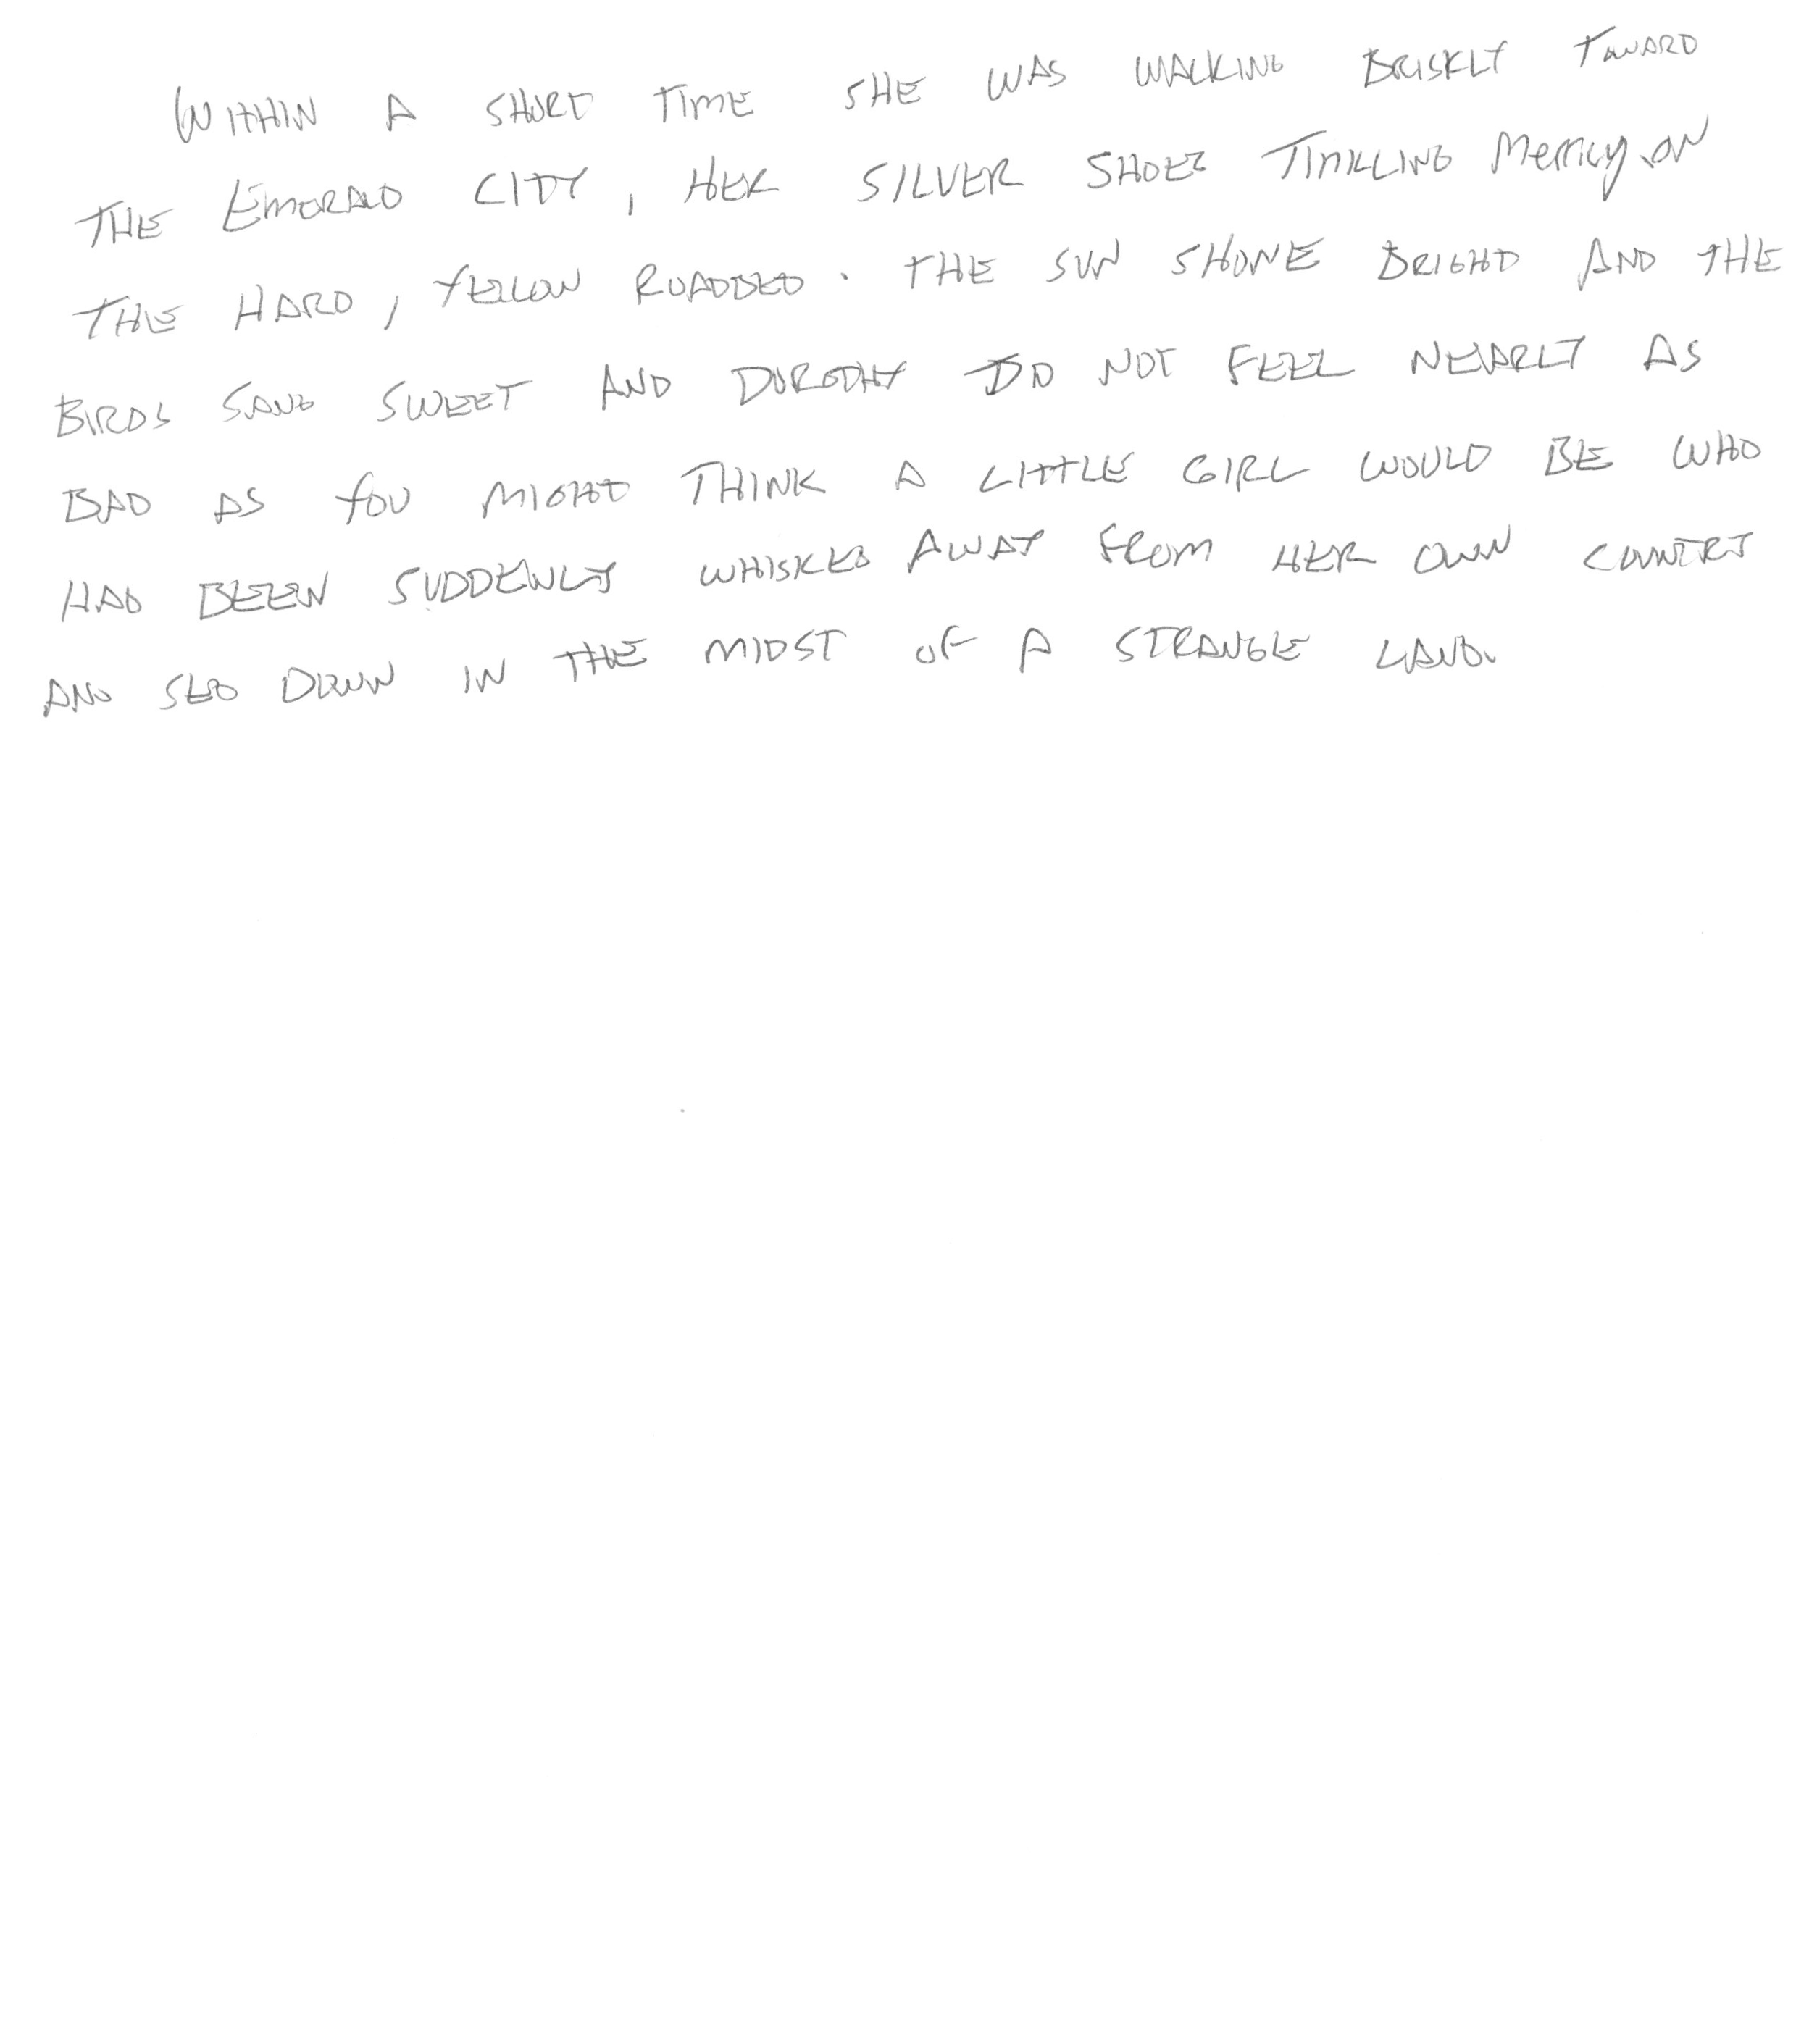 WITHIN A SHORT TIME SHE WAS WALKING BRISKLY TOWARD
THE EMERALD CITY, HER SILVER SHOES TINKLING MERRILY ON
THE HARD, YELLOW ROADBED. THE SUN SHONE BRIGHT AND THE
BIRDS SANG SWEET AND DOROTHY DID NOT FEEL NEARLY AS
BAD AS YOU MIGHT THINK A LITTLE GIRL WOULD BE WHO
HAD BEEN SUDDENLY WHISKED AWAY FROM HER OWN COUNTRY
AND SED DOWN IN THE MIDST OF A STRANGE LAND.